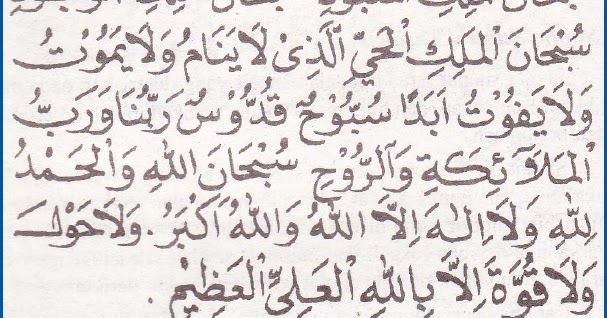 سُبْحَانَ الْمَلِكِ الْحَيِّ الَّذِىْ لَا يَنَامُ وَلَا يَمُوْتُ
وَلَا يَفُوْتُ اَبَدًا سُبُّوْحٌ قُدُّوْسٌ رَبُّنَا وَرَبُّ
الْمَلَآئِكَةِ وَالرُّوْحِ سُبْحَانَ اللهِ وَالْحَمْدُ
لِلّٰهِ وَلَا اِلٰهَ اِلَّا اللهُ وَاللهُ اَكْبَرُ. وَلَا حَوْلَ
وَلَا قُوَّةَ اِلَّا بِاللهِ الْعَلِىِّ الْعَظِيْمِ.